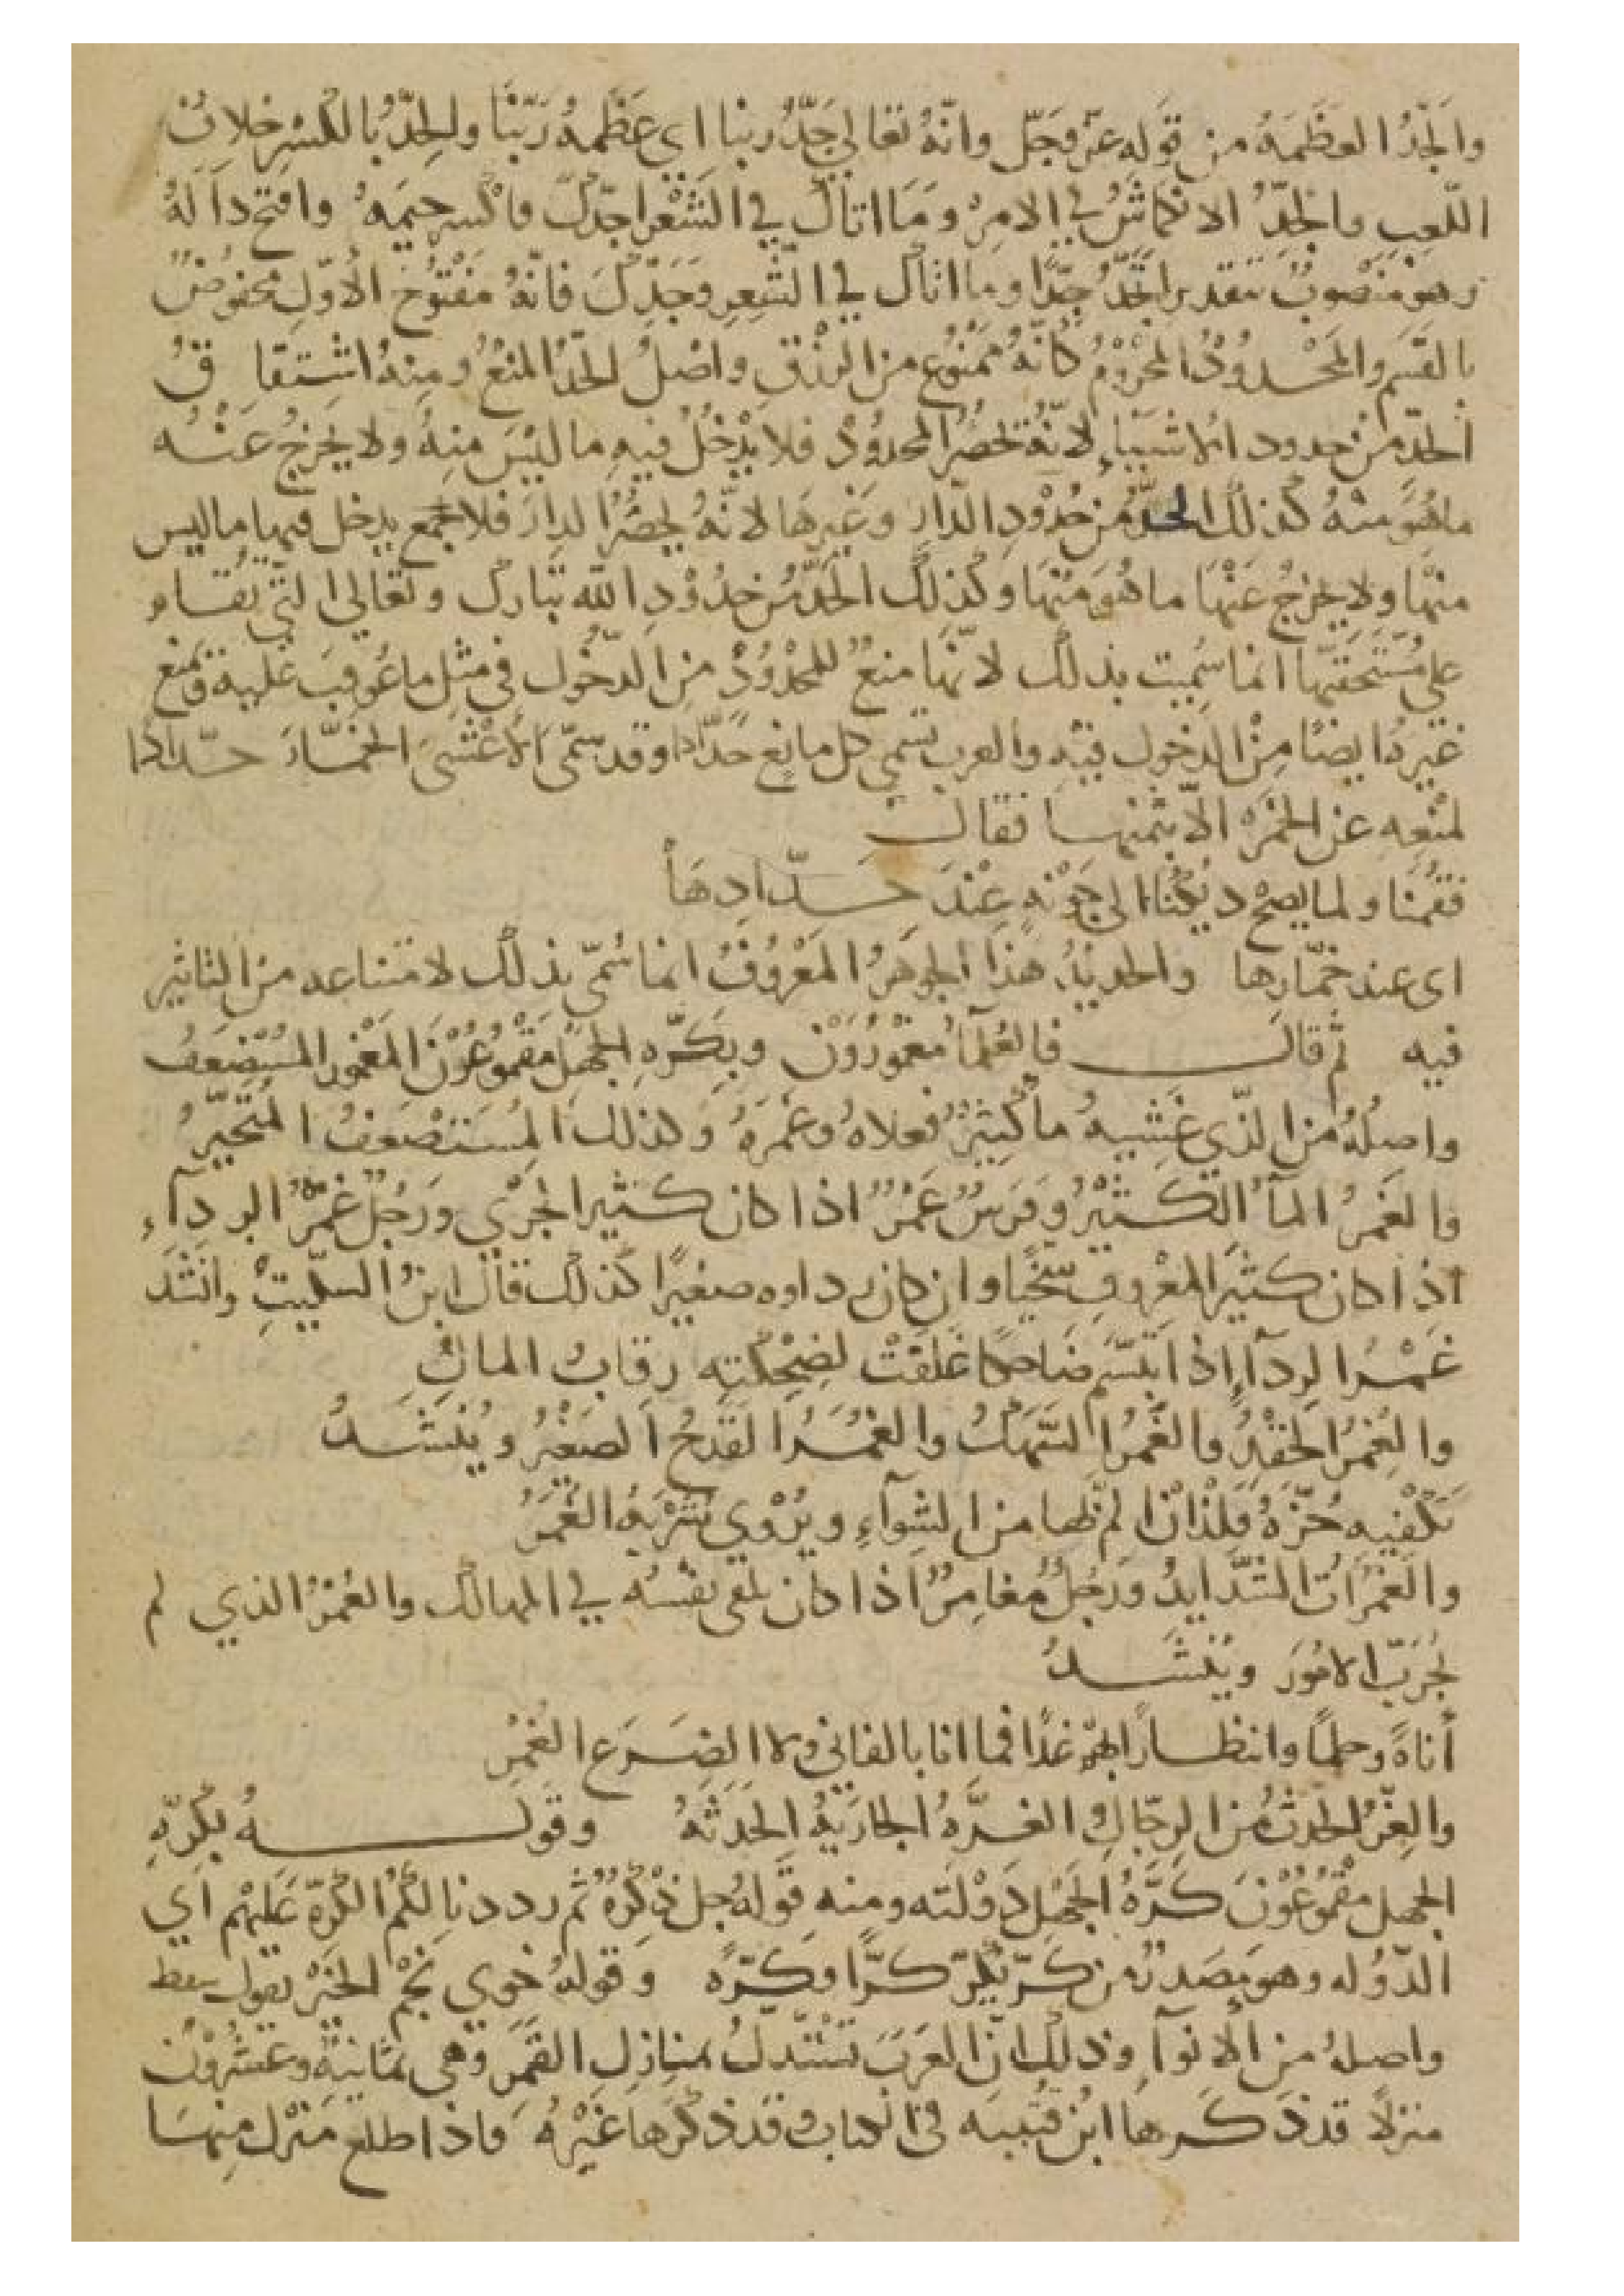 والجَدُّ العظَمَةُ من قوَله عزّ وجَلّ وانّهُ تعَالي جَدُّ ربنا اي عَظَمةُ رَبّنَا والجِدُّ بالكسْرِ خلافُ
اللّعِبِ والجِدُّ الانكماشُ في الامرْ وَمَا اتاك في الشعْر اجِدّك فاكسر جِيمَهُ وافتح دالهُ
وهو منصوبٌ بتقدير اتَجِدُّ جِدًّا وما اتاك في الشعِر وَجَدّكَ فانّهُ مَفْتوحُ الأوّلِ مخفوضٌ
بالقسَم والمَحْدودُ المحْرومُ كانّهُ ممنُوع من الرزْقِ واصْلُ الحَدّ المنعُ ومنهُ اشتقاقُ
الحدّ من حدود الاشيَاءِ لانّهُ يحصُرُ المحدودْ فلا يدْخُلُ فيهِ ما ليْسَ منِهُ ولا يَخرجُ عَنْه
ما هُوَ منهُ كذلك الحدُّ من حُدوْدِ الدّارِ وغَيرهَا لانّهُ يحصُرُ الدارَ فلا يدخل فيها ما ليس
منهَا ولا يخرجُ عَنْهَا ما هُوَ مَنْهَا وكذلِك الحَدّ من حدُوْدِ الله تبارك وتعَالي التي تُقَام
علي مُسْتَحَقّيهَا انما سُميت بذلك لانّهَا منعٌ للمحْدوُدْ من الدخُول في مثل ما عُوقبَ عليه وتمنع
غيرهُ ايضًا مِنْ الدخول فيْهِ والعرب تسمي كل مانع حَدّادا وقد سمّى الأعْشَى الخمّارَ حدّادًا
لمنْعِهِ عن الخمَره الاّ بثمنها فقالَ
فقُمنَا ولما يصحْ ديكُنَا الي جَوْنةٍ عِنْدَ حَدّادِهَا
اى عند خمّارها والحديدُ هذا الجوهَرُ المعْرُوفُ انما سُمّي بذلك لامتناعه من التاثير
فيه ثم قال فالعُلَمآ مغموُرُوْنَ وبِكَرّةِ الجهْل مقموُعُوْنَ المغمور المسُتضعَفُ
واصلُهُ من الذّي غَشيهُ مآ كثيرٌ فعلاهُ وغمَرهُ وكذلك المُسَتضعَفُ المتحَيّرُ
والغَمرُ المآُ الكثيْرُ وفَرسٌ غَمرٌ اذا كان كثير الجَرْي ورَجُلٌ غَمْرُ الردِآءِ
اذا كان كثيرَ المعْرُوفِ سَخيًا وان كان رداوه صغيرًا كذلك قال ابنُ السكّيتْ وانشَدَ
غَمْرُ الرِدآءِ إذا ابتَسّم ضَاحِكًا غَلقَتْ لضِحْكته رقابُ المالِ
والغِمْرُ الحِقْدُ والغَمرُ السّهَكُ والغُمَرُ القَدَحُ الصَغيْرُ ويُنشَدُ
تَكْفيه حُزّةُ فِلْذانْ المّ بها من الشِوآءِ ويرُوْي شرْبَهُ الغُمَرُ
والغَمرَاتُ الشّدايدُ ورَجُلٌ مُغامرٌ اذا كان يلقى نفسُه في المهالك والغُمْرُ الذي لم
يُجَربّ الامُورَ ويُنْشَدُ
أناةً وحلمًا وانتظارًا بهم غدًا فما انا بالفاني ولا الضَرَع الغُمرِ
والغِرّ الحدَثُ من الرجّال والغرّهُ الجاريَةُ الحَدثَهُ وقولهُ بكرّةِ
الجهل مقْموُعُوْنَ كَرّهُ الجَهْل دَوْلتَه ومنه قوَلهُ جل ذكْرُهُ ثُم رددنا لكُمُ الكرّةَ عَليْهم اي
الدّوُله وهو مصَدرٌ من كرّ يكُرّ كرًّا وكرّةً وقولهُ خَوي نجْمُ الخيْرْ يقول سقط
واصلهُ من الأنوآ وذلك انّ العَرَبَ تسْتدلُ بمنازلِ القَمَر وهي ثمانيةٌ وعشرُوْنَ
منزلاً قد ذكرها ابنُ قتيبه فى الكتاب وقد ذكَرها غَيْرُهُ فاذا طلع مَنْزل منهَا